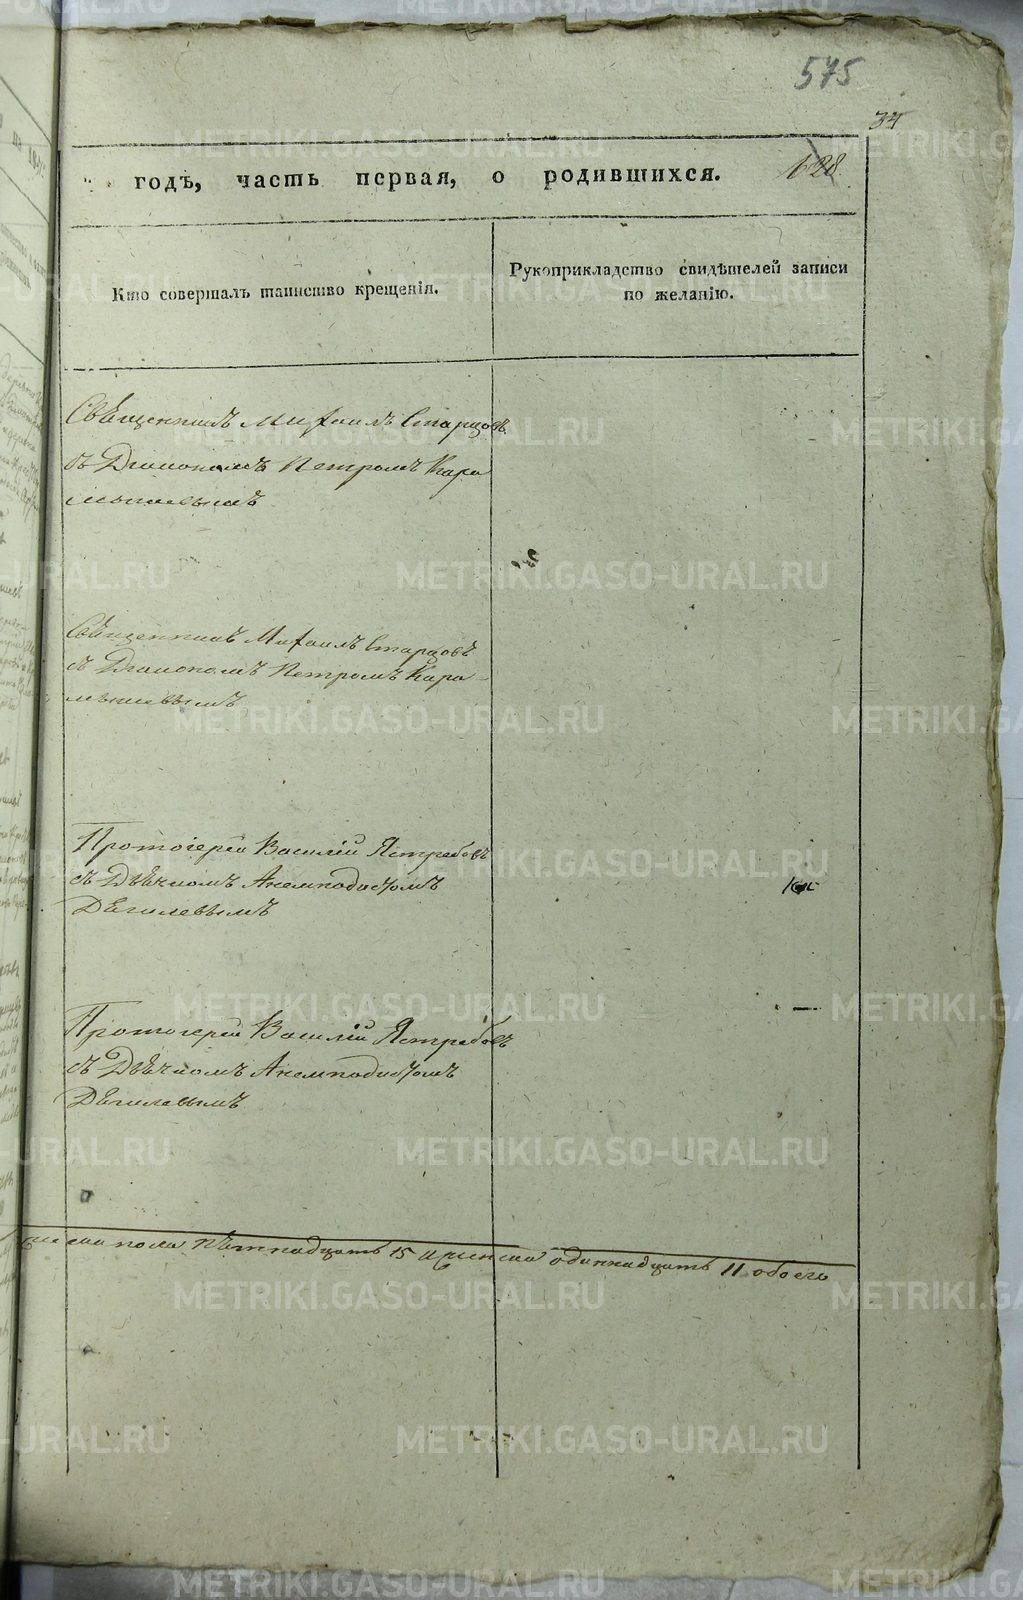 575
34
628
годѣ, часть первая, о родившихся.
Кто совершалъ таинство крещенія.
Рукоприкладство свидѣтелей записи
по желанію.
Священникъ Михаилъ Старцовъ
съ Діакономъ Петромъ Кара
мышевымъ
Священникъ Михаилъ Старцовъ
съ Діакономъ Петромъ Кара-
мышевымъ
Протоіерей Василій Ястребовъ
съ Дьячкомъ Акемподистомъ
Дѣгилевымъ
Протоіерей Василій Ястребовъ
съ Дьячкомъ Акемподистомъ
Дѣгилевымъ
пола пѣтнадцать 15 и женска одиннадцать 11 обоего
METRIKI.GASO-URAL.RU